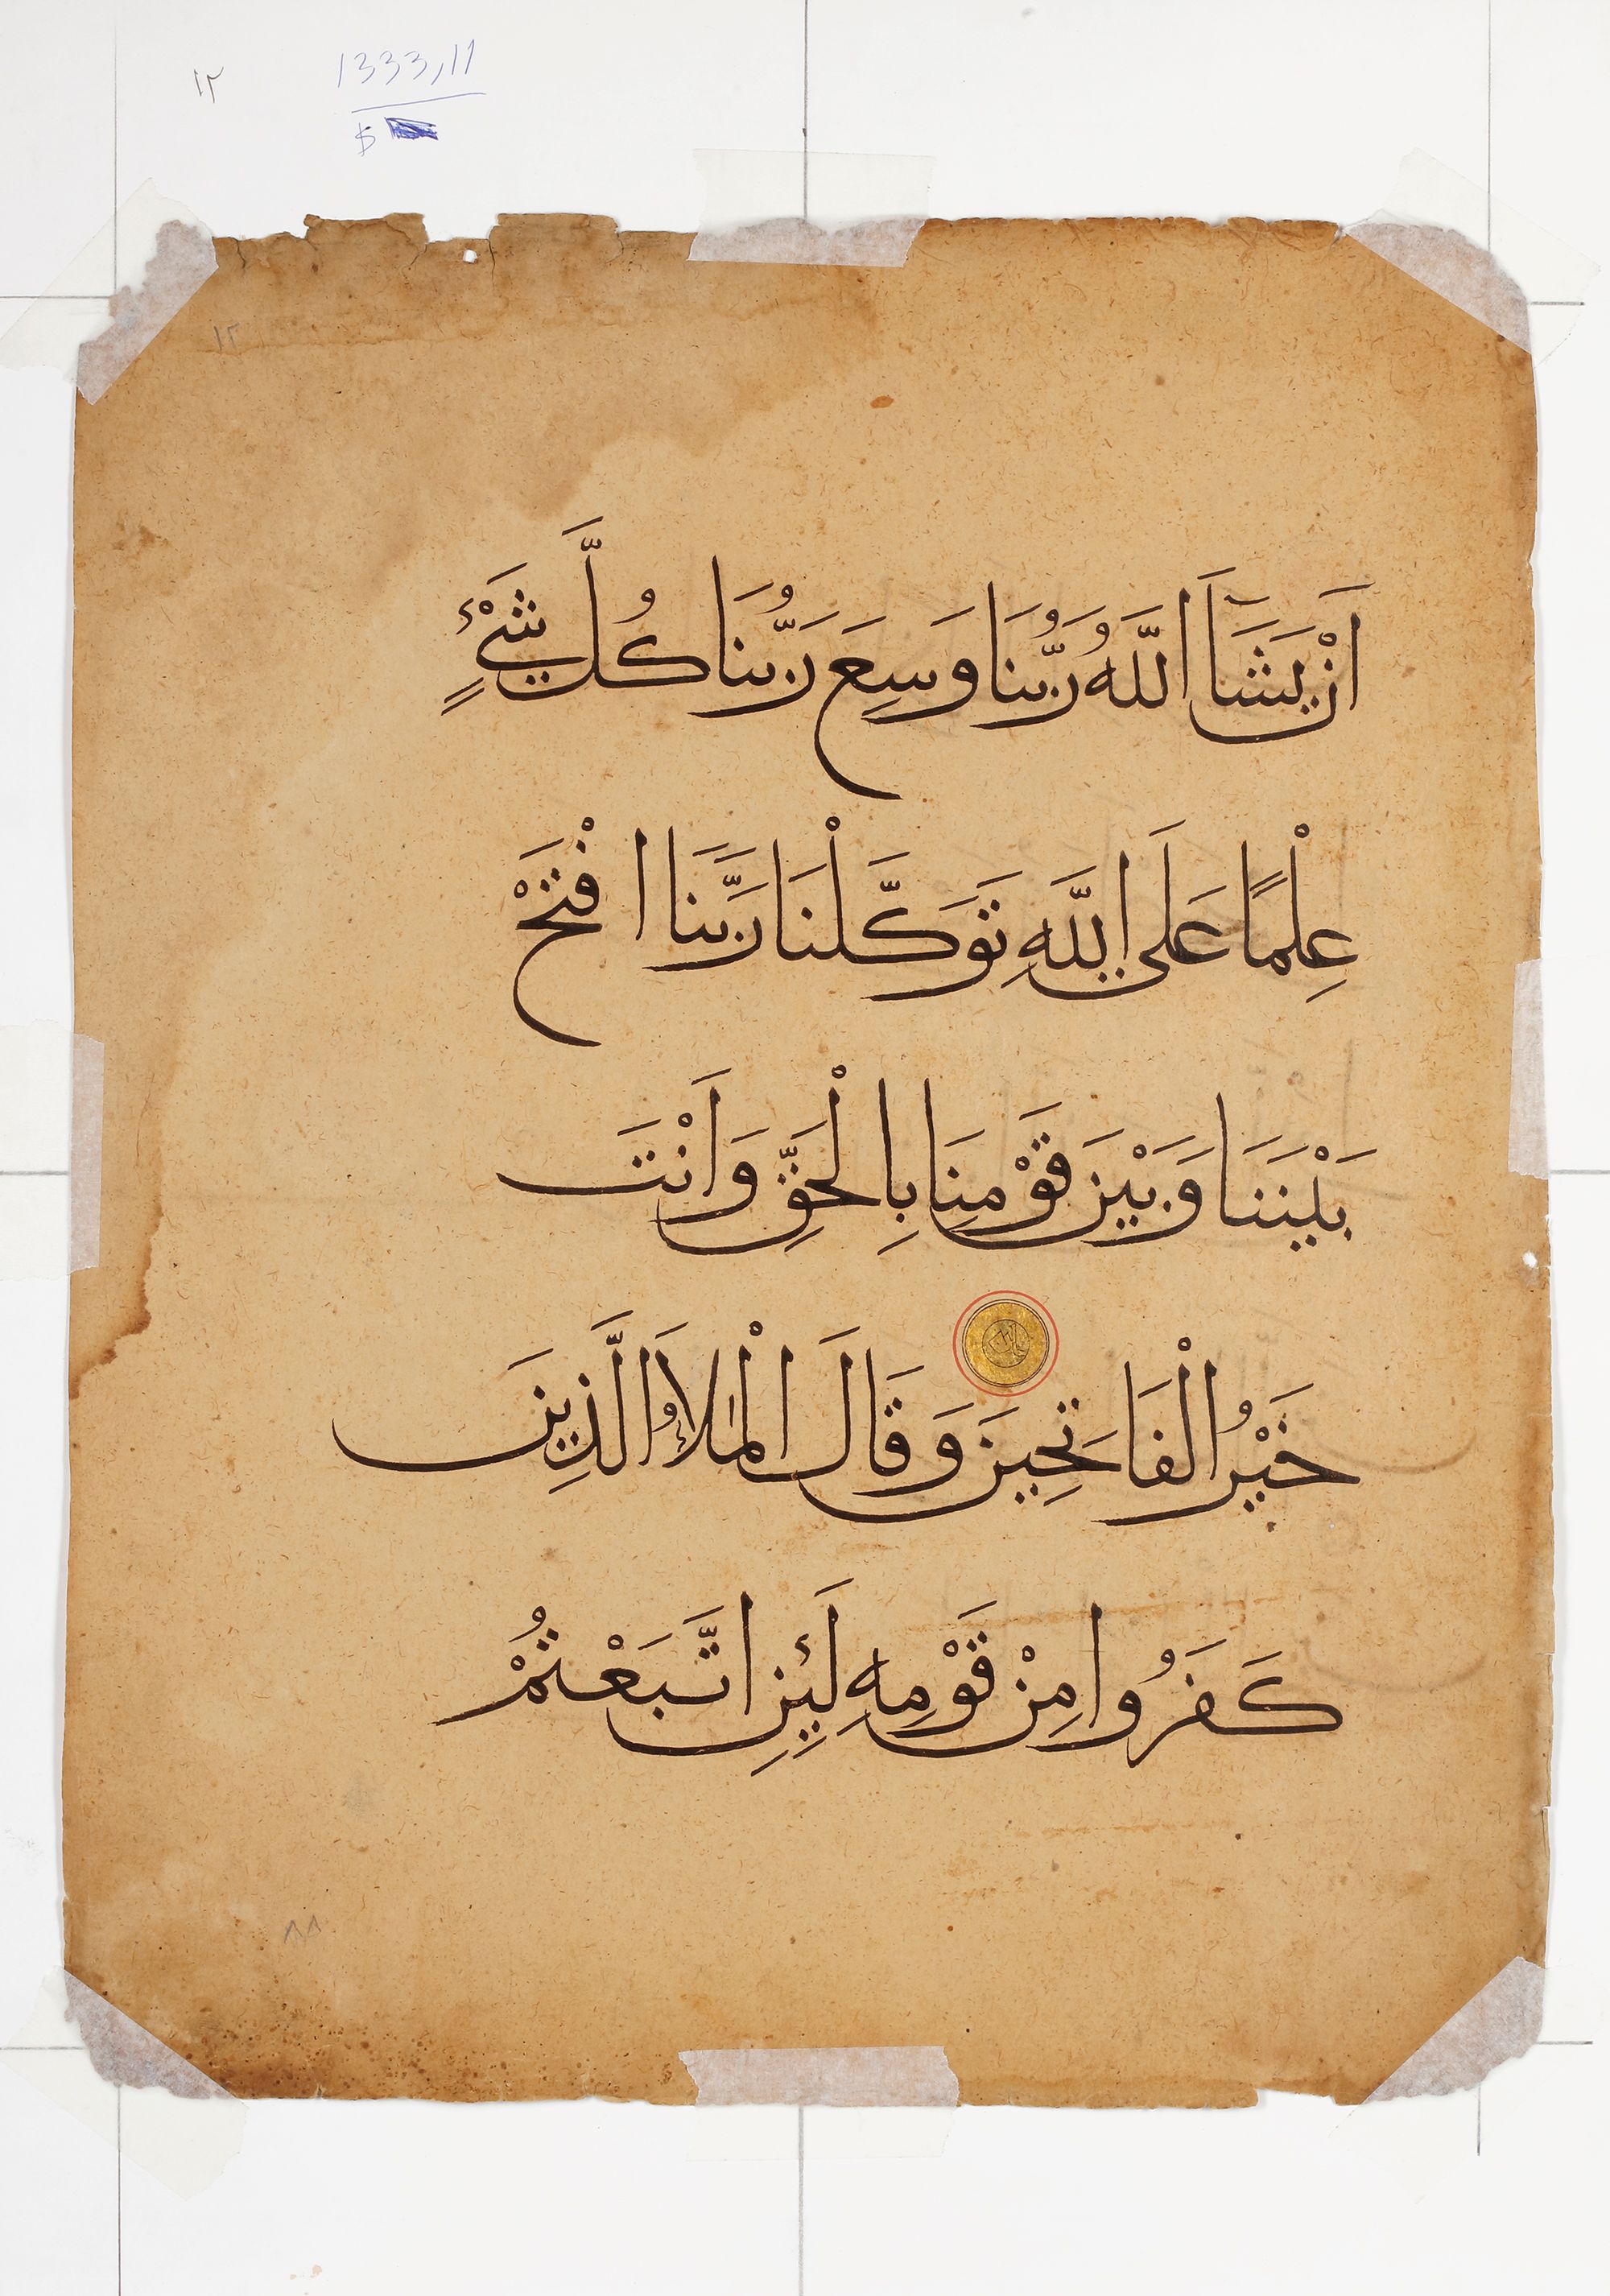 ١٢
1333,11
$
١٢
اَنْ يَشَاَ اللَّهُ رَبُّنَا وَسِعَ رَبُّنَا كُلَّ شَىْءٍ
عِلْمًا عَلَى اللَّهِ تَوَكَّلْنَا رَبَّنَا افْتَحْ
بَيْنَنَا وَبَيْنَ قَوْمِنَا بِالْحَقِّ وَاَنْتَ
خَيْرُ الْفَاتِحِينَ وَقَالَ الْمَلَاُ الَّذِينَ
كَفَرُوا مِنْ قَوْمِهِ لَئِنِ اتَّبَعْتُمْ
٨٨